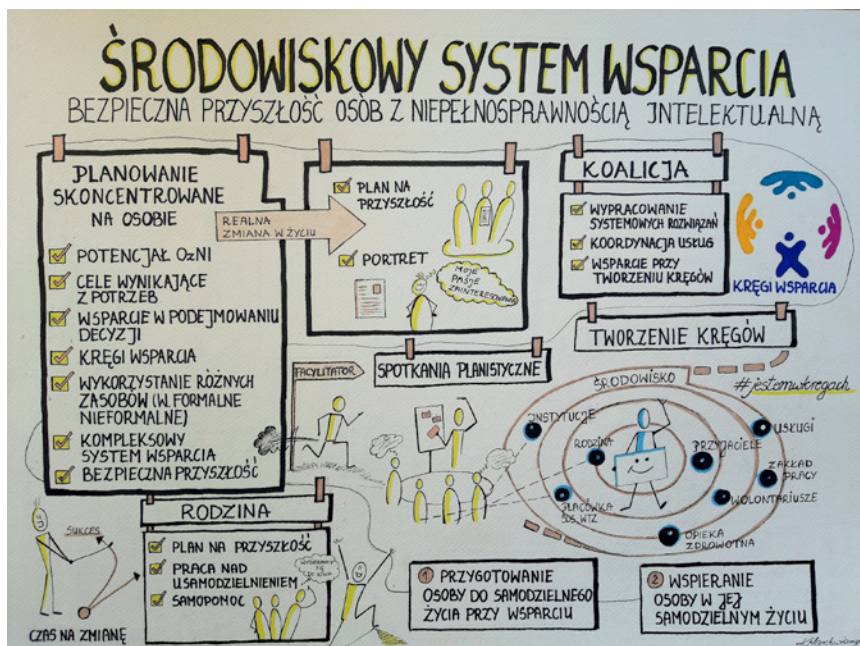 ŚRODOWISKOWY SYSTEM WSPARCIA
BEZPIECZNA PRZYSZŁOŚĆ OSÓB Z NIEPEŁNOSPRAWNOŚCIĄ INTELEKTUALNĄ
PLANOWANIE
SKONCENTROWANE
NA OSOBIE
POTENCJAŁ OzNI
CELE WYNIKAJĄCE
Z POTRZEB
WSPARCIE W PODEJMOWANIU
DECYZJI
KRĘGI WSPARCIA
WYKORZYSTANIE RÓŻNYCH
ZASOBÓW (W. FORMALNE
NIEFORMALNE)
KOMPLEKSOWY
SYSTEM WSPARCIA
BEZPIECZNA PRZYSZŁOŚĆ
REALNA
ZMIANA W ŻYCIU
PLAN NA
PRZYSZŁOŚĆ
PORTRET
MOJE
PASJE
ZAINTERESOWANIA
KOALICJA
WYPRACOWANIE
SYSTEMOWYCH ROZWIĄZAŃ
KOORDYNACJA USŁUG
WSPARCIE PRZY
TWORZENIU KRĘGÓW
KRĘGI WSPARCIA
TWORZENIE KRĘGÓW
FACYLITATOR
SPOTKANIA PLANISTYCZNE
#jestemwkregach
ŚRODOWISKO
INSTYTUCJE
RODZINA
PRZYJACIELE
USŁUGI
ZAKŁAD
PRACY
WOLONTARIUSZE
PLACÓWKA
ŚDS WTZ
OPIEKA
ZDROWOTNA
RODZINA
PLAN NA PRZYSZŁOŚĆ
PRACA NAD
USAMODZIELNIENIEM
SAMOPOMOC
SUKCES
CZAS NA ZMIANĘ
1 PRZYGOTOWANIE
OSOBY DO SAMODZIELNEGO
ŻYCIA PRZY WSPARCIU
2 WSPIERANIE
OSOBY W JEJ
SAMODZIELNYM ŻYCIU